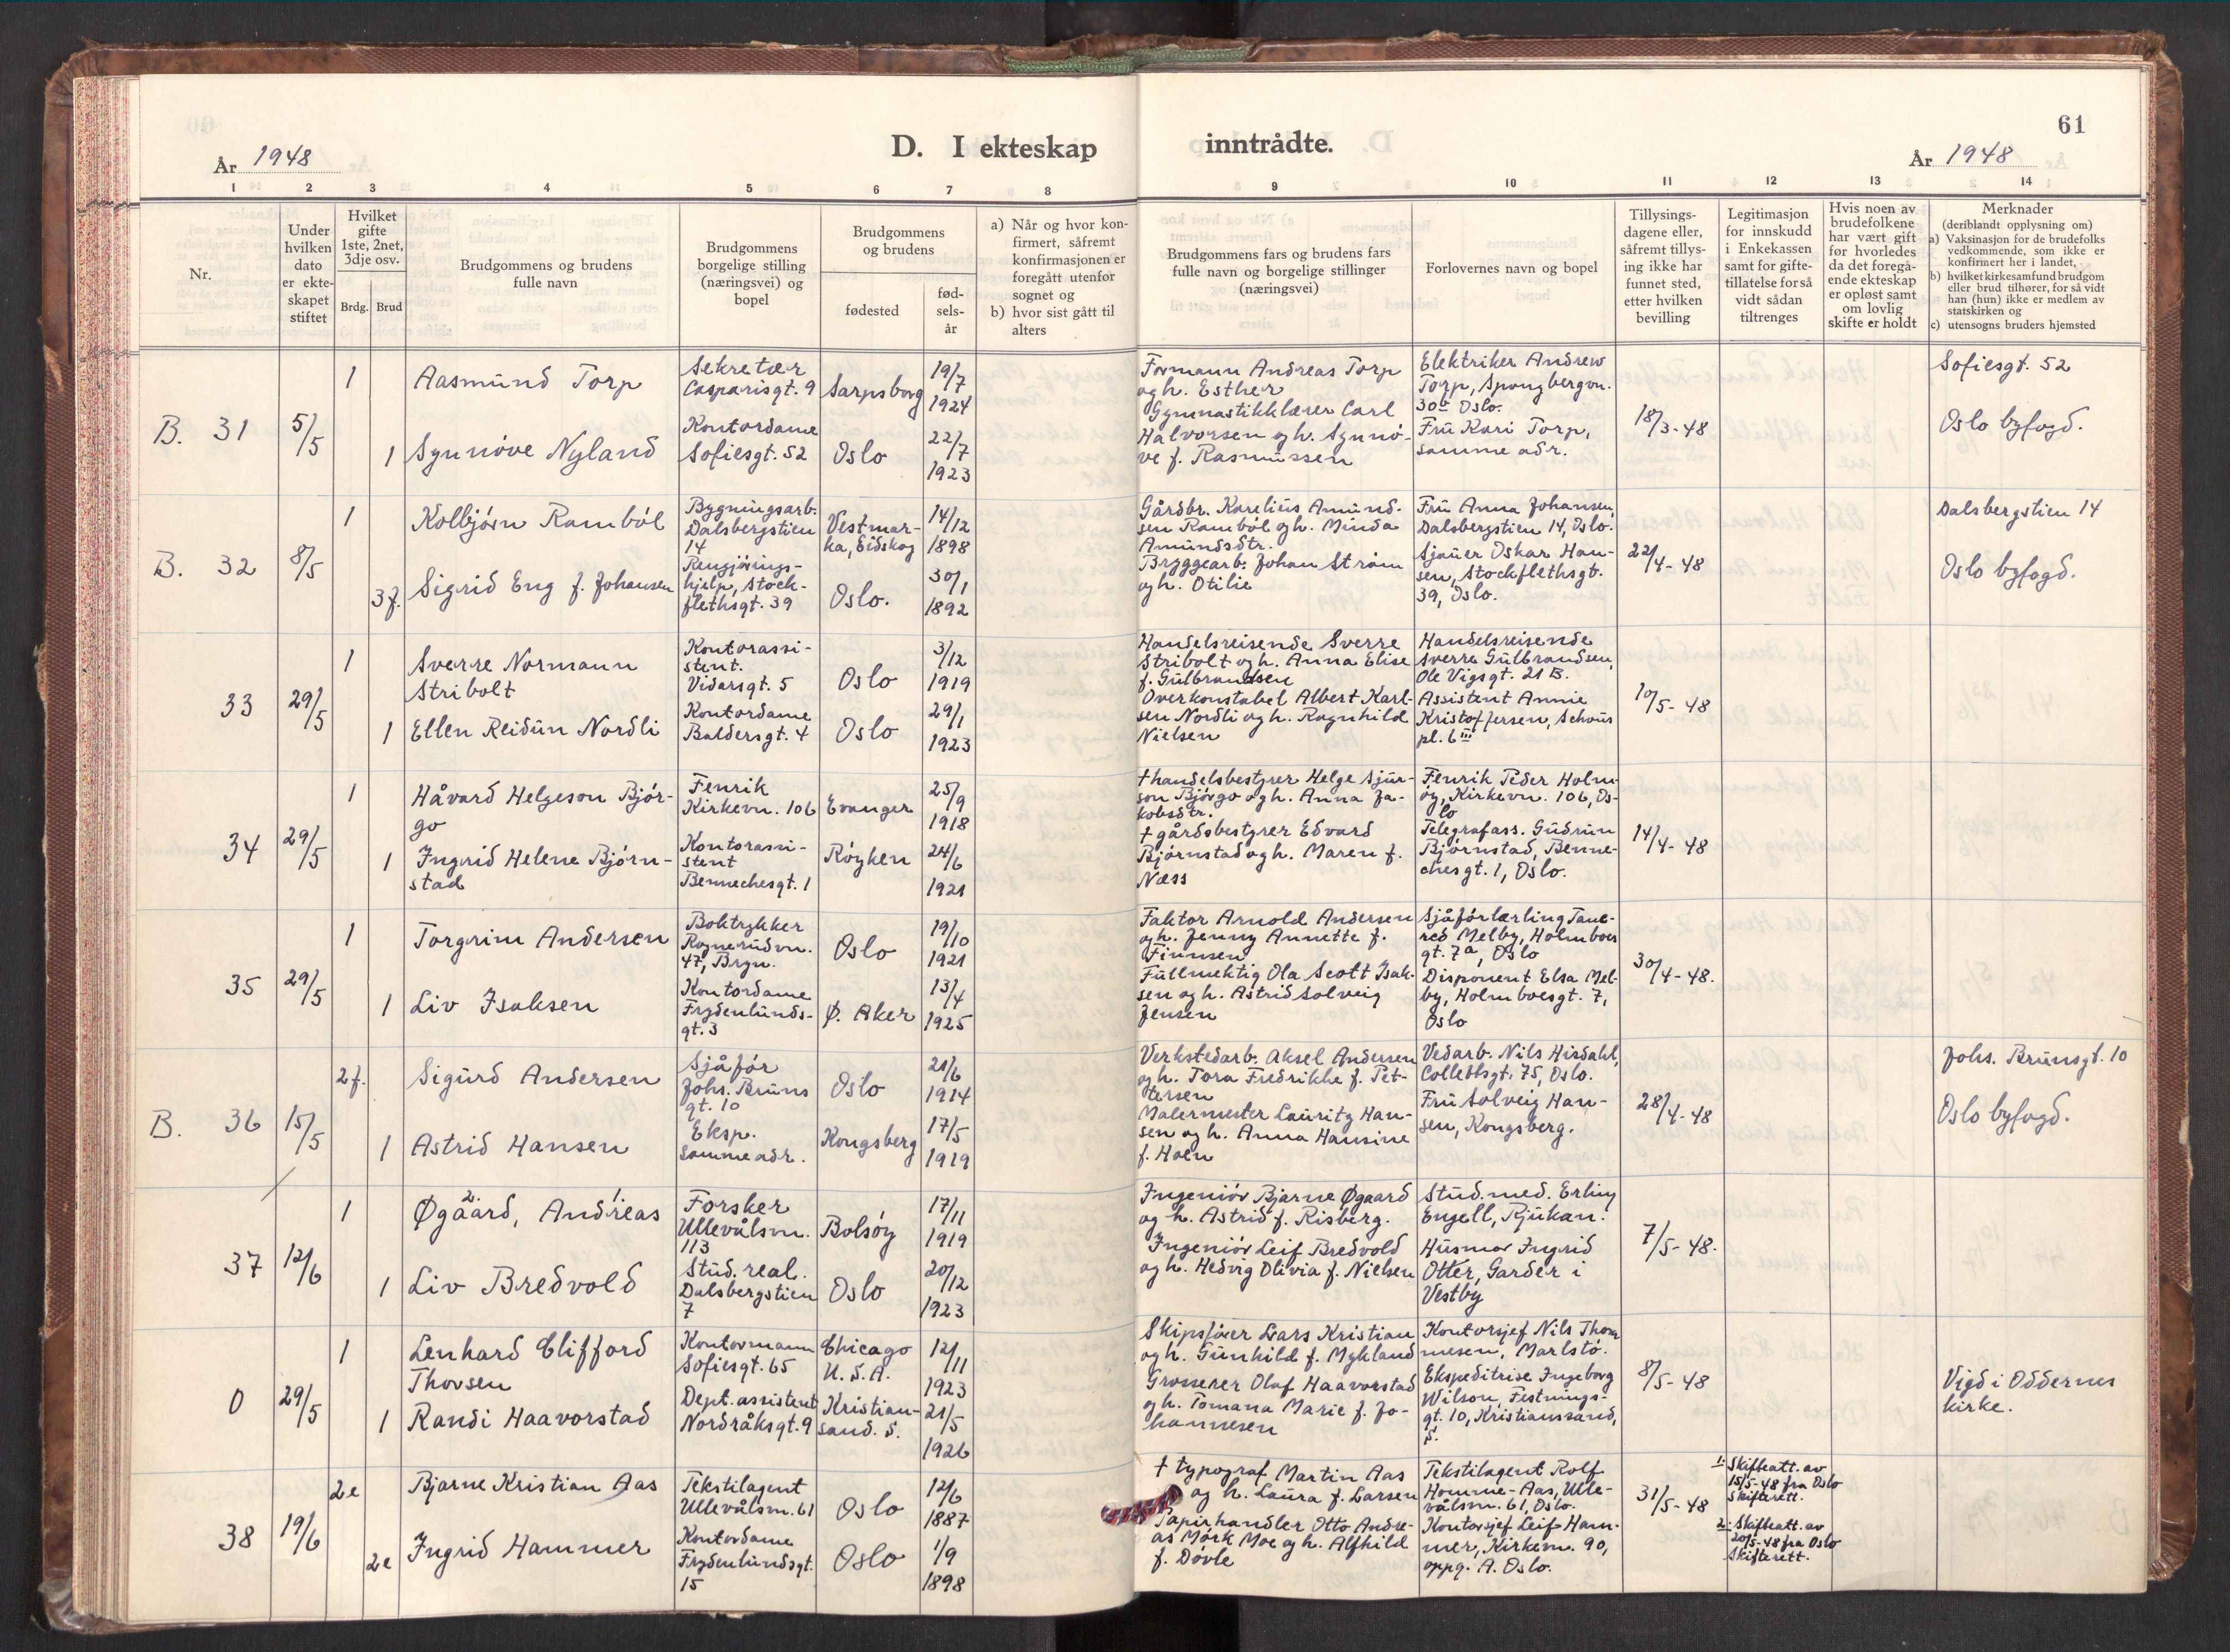 61
D. I ekteskap inntrådte.
År 1948
År 1948
1 2 3 4 5 6 7 8 9 10 11 12 13 14
Nr.
Under
hvilken
dato
er ekte-
skapet
stiftet
Hvilket
gifte
1ste, 2net,
3dje osv.
Brdg.
Brud
Brudgommens og brudens
fulle navn
Brudgommens
borgelige stilling
(næringsvei) og
bopel
Brudgommens
og brudens
fødested
fød-
sels-
år
a) Når og hvor kon-
firmert, såfremt
konfirmasjonen er
foregått utenfor
sognet og
b) hvor sist gått til
alters
Brudgommens fars og brudens fars
fulle navn og borgelige stillinger
(næringsvei)
Forlovernes navn og bopel
Tillysings-
dagene eller,
såfremt tillys-
ing ikke har
funnet sted,
etter hvilken
bevilling
Legitimasjon
for innskudd
i Enkekassen
samt for gifte-
tillatelse for så
vidt sådan
tiltrenges
Hvis noen av
brudefolkene
har vært gift
før hvorledes
da det foregå-
ende ekteskap
er opløst samt
om lovlig
skifte er holdt
Merknader
(deriblandt opplysning om)
a) Vaksinasjon for de brudefolks
vedkommende, som ikke er
konfirmert her i landet,
b) hvilket kirkesamfund brudgom
eller brud tilhører, for så vidt
han (hun) ikke er medlem av
statskirken og
c) utensogns bruders hjemsted
B. 31
5/5
1
Aasmund Torp
Sekretær
Casparisgt. 9
Sarpsborg
19/7
1924
1
Synnöve Nyland
Kontordame
Sofiesgt. 52
Oslo
22/7
1923
Formann Andreas Torp
og h. Esther
Gymnastikklærer Carl
Halvorsen og h. Synnö-
ve f. Rasmussen
Elektriker Andrew
Torp, Spongbergvn.
30b Oslo.
Fru Kari Torp,
samme adr.
18/3-48
Sofiesgt. 52
Oslo byfogd.
B. 32
8/5
1
Kolbjörn Ramból
Bygningsarb.
Dalsbergstien
14
Vestmar-
ka, Eidskog
14/12
1898
3 f.
Sigrid Eng f. Johansen
Rengjörings-
hjelp, Stock-
flethsgt. 39
Oslo.
30/1
1892
Gårdbr. Karelius Amund-
sen Ramból og h. Minda
Amundsdtr.
Bryggearb. Johan Ström
og h. Otilie
Fru Anna Johansen,
Dalsbergstien 14, Oslo.
Sjauer Oskar Han-
sen, Stockflethsgt.
39, Oslo.
22/4-48
Dalsbergstien 14
Oslo byfogd.
33
29/5
1
Sverre Normann
Stribolt
Kontorassi-
stent.
Vidarsgt. 5
Oslo
3/12
1919
1
Ellen Reidun Nordli
Kontordame
Baldersgt. 4
Oslo
29/1
1923
Handelsreisende Sverre
Stribolt og h. Anna Elise
f. Gulbrandsen
Overkonstabel Albert Karl-
sen Nordli og h. Ragnhild
Nielsen
Handelsreisende
Sverre Gulbrandsen,
Ole Vigsgt. 21 B.
Assistent Annie
Kristoffersen, Schous
pl. 6 III
10/5-48
34
29/5
1
Håvard Helgeson Bjór-
go
Fenrik
Kirkevn. 106
Evanger
25/9
1918
1
Ingrid Helene Bjórn-
stad
Kontorassi-
stent
Bennechesgt. 1
Röyken
24/6
1921
† handelsbestyrer Helge Sjur-
son Bjórgo og h. Anna Ja-
kobsdtr.
† gårdsbestyrer Edvard
Bjórnstad og h. Maren f.
Næss
Fenrik Peder Holm-
öy, Kirkevn. 106, Os-
lo
Telegrafass. Gudrun
Bjórnstad, Benne-
chesgt. 1, Oslo.
14/4-48
35
29/5
1
Torgrim Andersen
Boktrykker
Rognerudvn.
47, Bryn.
Oslo
19/10
1921
1
Liv Isaksen
Kontordame
Frydenlunds-
gt. 3
Ø. Aker
13/4
1925
Faktor Arnold Andersen
og h. Jenny Annette f.
Finnsen
Fullmektig Ola Scott Isak-
sen og h. Astrid Solveig
Jensen
Sjåförlærling Tanc-
red Melby, Holmboes
gt. 7a, Oslo
Disponent Elsa Mel-
by, Holmboesgt. 7,
Oslo
30/4-48.
B. 36
15/5
2 f.
Sigurd Andersen
Sjåför
Johs. Bruns
gt. 10
Oslo
21/6
1914
1
Astrid Hansen
Eksp.
Samme adr.
Kongsberg
17/5
1919
Verkstedarb. Aksel Andersen
og h. Tora Fredrikke f. Pet-
tersen
Malermester Lauritz Han-
sen og h. Anna Hansine
f. Holm
Vedarb. Nils Hisdahl,
Collettsgt. 75, Oslo.
Fru Solveig Han-
sen, Kongsberg.
28/4-48
Johs. Brunsgt. 10
Oslo byfogd.
37
12/6
1
2. 1
Øgaard, Andreas
Forsker
Ullevålsvn.
113
Bolsöy
17/11
1919
1
Liv Bredvold
Stud. real.
Dalsbergstien
7
Oslo
20/12
1923
Ingeniör Bjarne Øgaard
og h. Astrid f. Risberg.
Ingeniör Leif Bredvold
og h. Hedvig Olivia f. Nielsen
Stud. med. Erling
Engell, Rjukan.
Husmor Ingrid
Otter, Garder i
Vestby
7/5-48.
0
29/5
1
Lenhard Clifford
Thorsen
Kontormann
Sofiesgt. 65
Chicago
U.S.A.
12/11
1923
1
Randi Haavorstad
Dept. assistent
Nordråksgt. 9
Kristian-
sand. S.
21/5
1926
Skipsförer Lars Kristian
og h. Gunhild f. Mykland
Grosserer Olaf Haavorstad
og h. Tomana Marie f. Jo-
hannesen
Kontorsjef Nils Thom
mesen, Marlstö.
Ekspeditrise Ingeborg
Wilson, Festnings-
gt. 10, Kristianssand,
S.
8/5-48
Vigd i Oddernes
kirke.
38
19/6
2 e
Bjarne Kristian Aas
Tekstilagent
Ullevålsvn. 61
Oslo
12/6
1887
2 e
Ingrid Hammer
Kontordame
Frydenlundsgt.
15
Oslo
1/9
1898
† typograf Martin Aas
og h. Laura f. Larsen
Papirhandler Otto Andre-
as Mörk Moe og h. Alfhild
f. Dövle
Tekstilagent Rolf
Homme-Aas, Ulle-
vålsvn. 61, Oslo.
Kontorsjef Leif Ham-
mer, Kirkevn. 90,
oppg. A. Oslo.
31/5-48
1. Skifteatt. av
15/5-48 fra Oslo
Skifterett.
2. Skifteatt. av
20/5-48 fra Oslo
Skifterett.